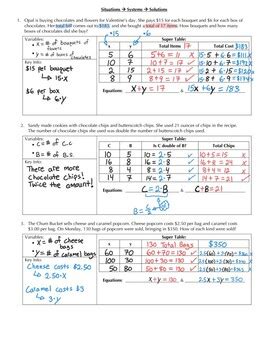 Situations → Systems → Solutions
1. Opal is buying chocolates and flowers for Valentine's day. She pays $15 for each bouquet and $6 for each box of
chocolates. Her total bill comes out to $183, and she bought a total of 17 items. How many bouquets and how many
boxes of chocolates did she buy?
Variables:
• X = # of bouquets of flowers
• y = # of boxes of chocolates
Key Info:
$15 per bouquet
↳ 15·X
$6 per box
↳ 6y
Super Table:
Total Items 17
Total Cost $183
5 6 5+6 = 11 ✗
X+y = 17
15x+6y=183
2. Sandy made cookies with chocolate chips and butterscotch chips. There are a total of 21 chips in the cookies.
The number of chocolate chips she used was double the number of butterscotch chips.
Variables:
• C = # of C.C.
• B = # of B.S.
Key Info:
There are more
Chocolate Chips!
Twice the amount!
Super Table:
C B Is C double of B? Total Chips
10 5 10 = 2·5 ✓ 10+5 = 15 ✗
16 8 16 = 2·8 ✓ 16+8 = 24 ✗
14 7 14 = 2·7 ✓ 14+7 = 21 ✓
Equations:
C = 2·B
C+B = 21
3. The Churn Bucket sells cheese and caramel popcorn. Cheese popcorn costs $2.50 per bag and caramel
$3.00 per bag. On Monday, 130 bags of popcorn were sold, bringing in $350. How of each kind were sold?
Variables:
• X = # of cheese bags
• y = # of caramel bags
Key Info:
Cheese costs $2.50
↳ 2.50·X
Caramel costs $3
↳ 3·y
Super Table:
130 Total Bags $350
60 70 60+70 = 130 ✓
100 30 100+30 = 130 ✓
80 50 80+50 = 130 ✓
Equations:
X+y = 130
2.5x+3y=350